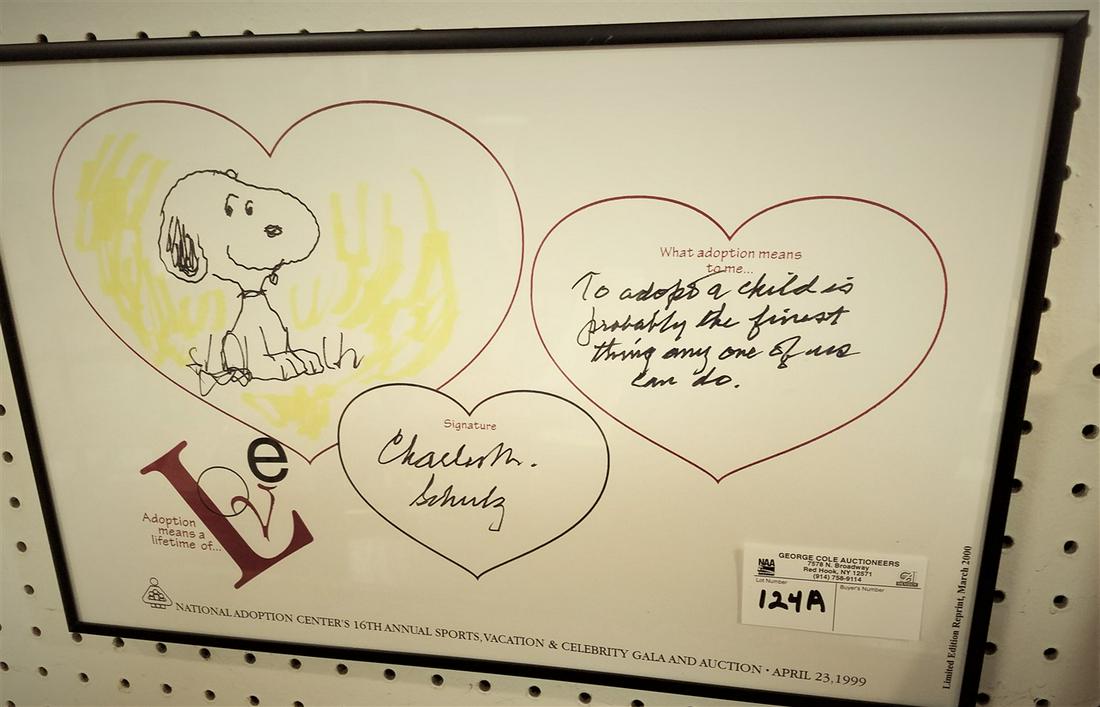 What adoption means
to me...
To adopt a child is
probably the finest
thing any one of us
can do.
Signature
Charles M.
Schulz
Love
Adoption
means a
lifetime of...
NATIONAL ADOPTION CENTER'S 16TH ANNUAL SPORTS, VACATION & CELEBRITY GALA AND AUCTION • APRIL 23, 1999
Limited Edition Reprint, March 2000
NAA
GEORGE COLE AUCTIONEERS
7578 N. Broadway
Red Hook, NY 12571
(914) 758-9114
Lot Number
Buyer's Number
124A